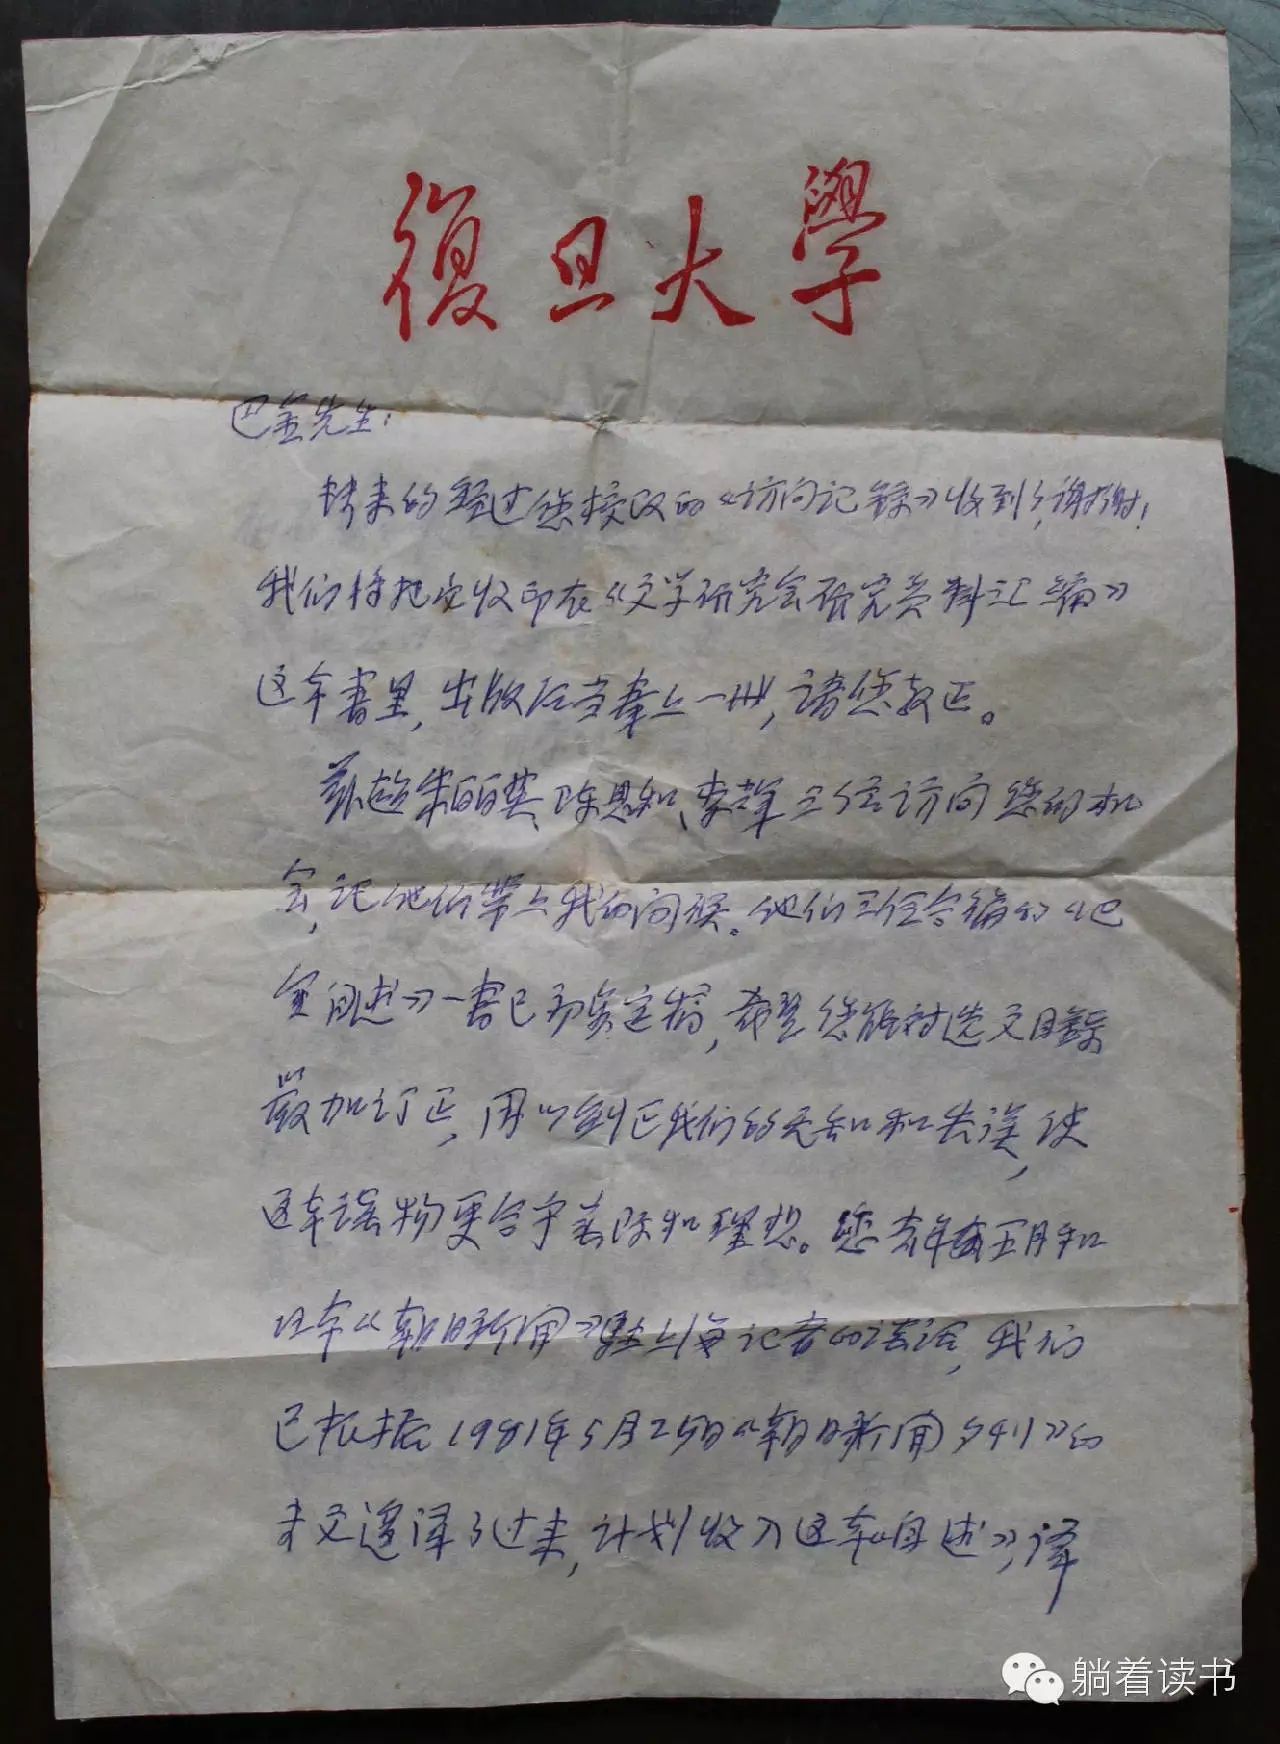 復旦大學
巴金先生：
转来的经过您校改的《访问记录》收到了，谢谢！
我们将把它收印在《文学研究会研究资料汇编》
这本书里，出版后当奉上一册，请您教正。
兹趁 陈思和、李辉三位访问您的机
会，记他们带上我的问候。他们三位合编的《巴
金自述》一书已初步定稿，希望您能对选文目录
严加订正，用以纠正我们的无知和失误，使
这本读物更合乎实际和理想。您去年五月和
日本《朝日新闻》驻上海记者的谈话，我们
已根据1981年5月25日《朝日新闻夕刊》的
本文译了过来，计划收入这本《自述》，译
躺着读书